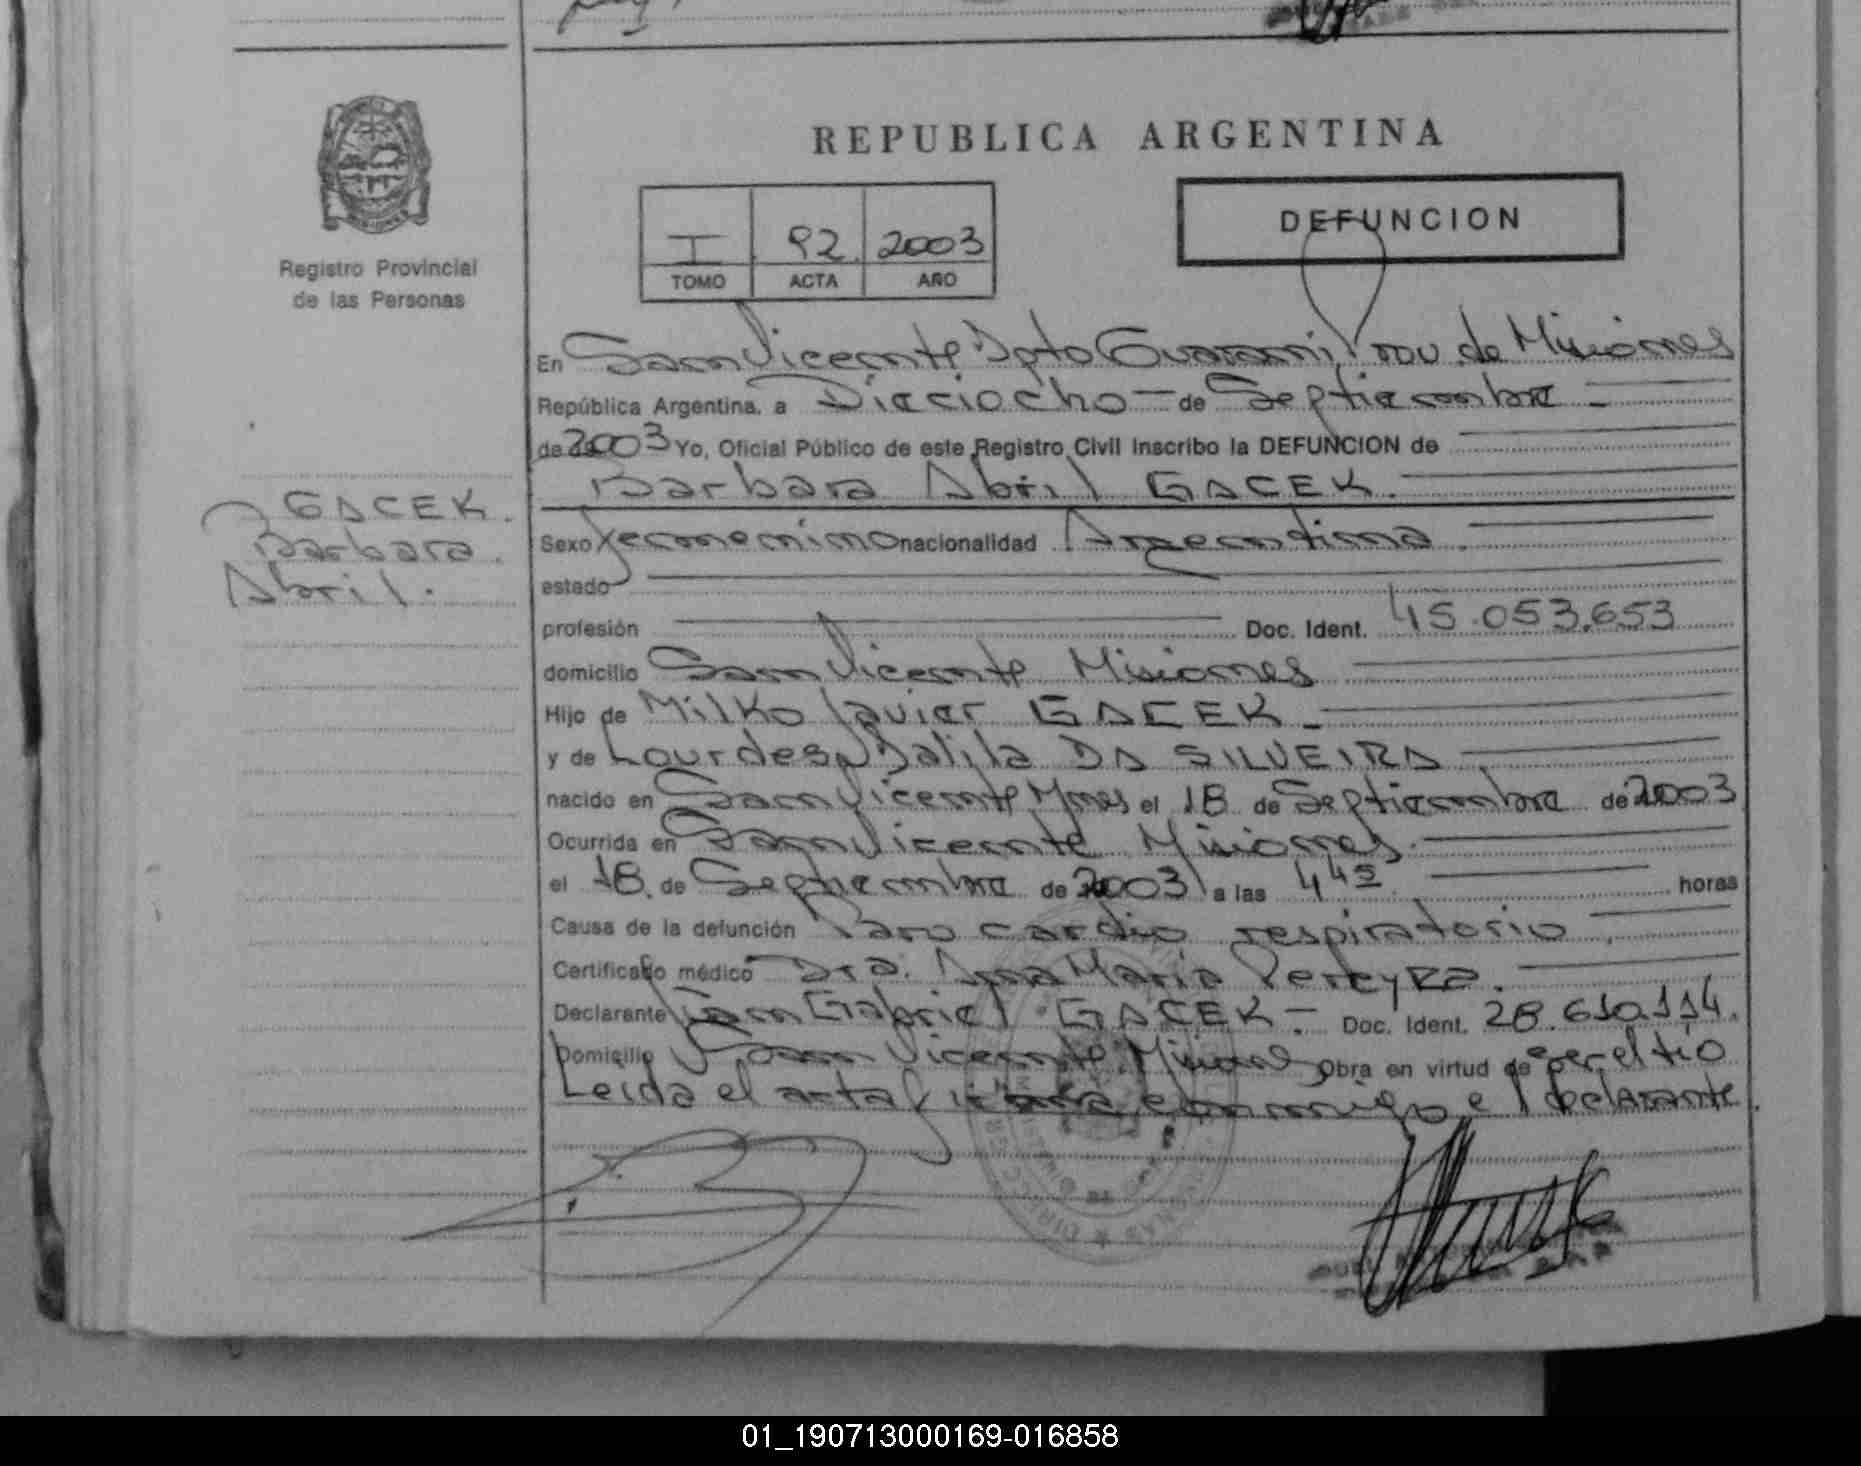 REPUBLICA ARGENTINA
DEFUNCION
I 92 2003
TOMO ACTA AÑO
Registro Provincial
de las Personas
En San Vicente Dpto Guarani Prov. de Misiones
República Argentina, a Dieciocho — de Septiembre —
de 2003 Yo, Oficial Público de este Registro Civil Inscribo la DEFUNCION de
Barbara Abril GACEK.
GACEK.
Barbara.
Abril.
Sexo femenino nacionalidad Argentina.
estado
profesión Doc. Ident. 45.053.653
domicilio San Vicente Misiones
Hijo de Milko Javier GACEK —
y de Lourdes Dalila DA SILVEIRA
nacido en San Vicente Mnes el 18 de Septiembre de 2003
Ocurrida en San Vicente Misiones.
el 18. de Septiembre de 2003 a las 4 45 horas
Causa de la defunción Paro cardio respiratorio.
Certificado médico Dra. Ana Maria Pereyra.
Declarante Gabriel GACEK — Doc. Ident. 28.610.114.
Domicilio San Vicente Misiones Obra en virtud de ser el tio
Leida el acta firmara conmigo el declarante.
01_190713000169-016858